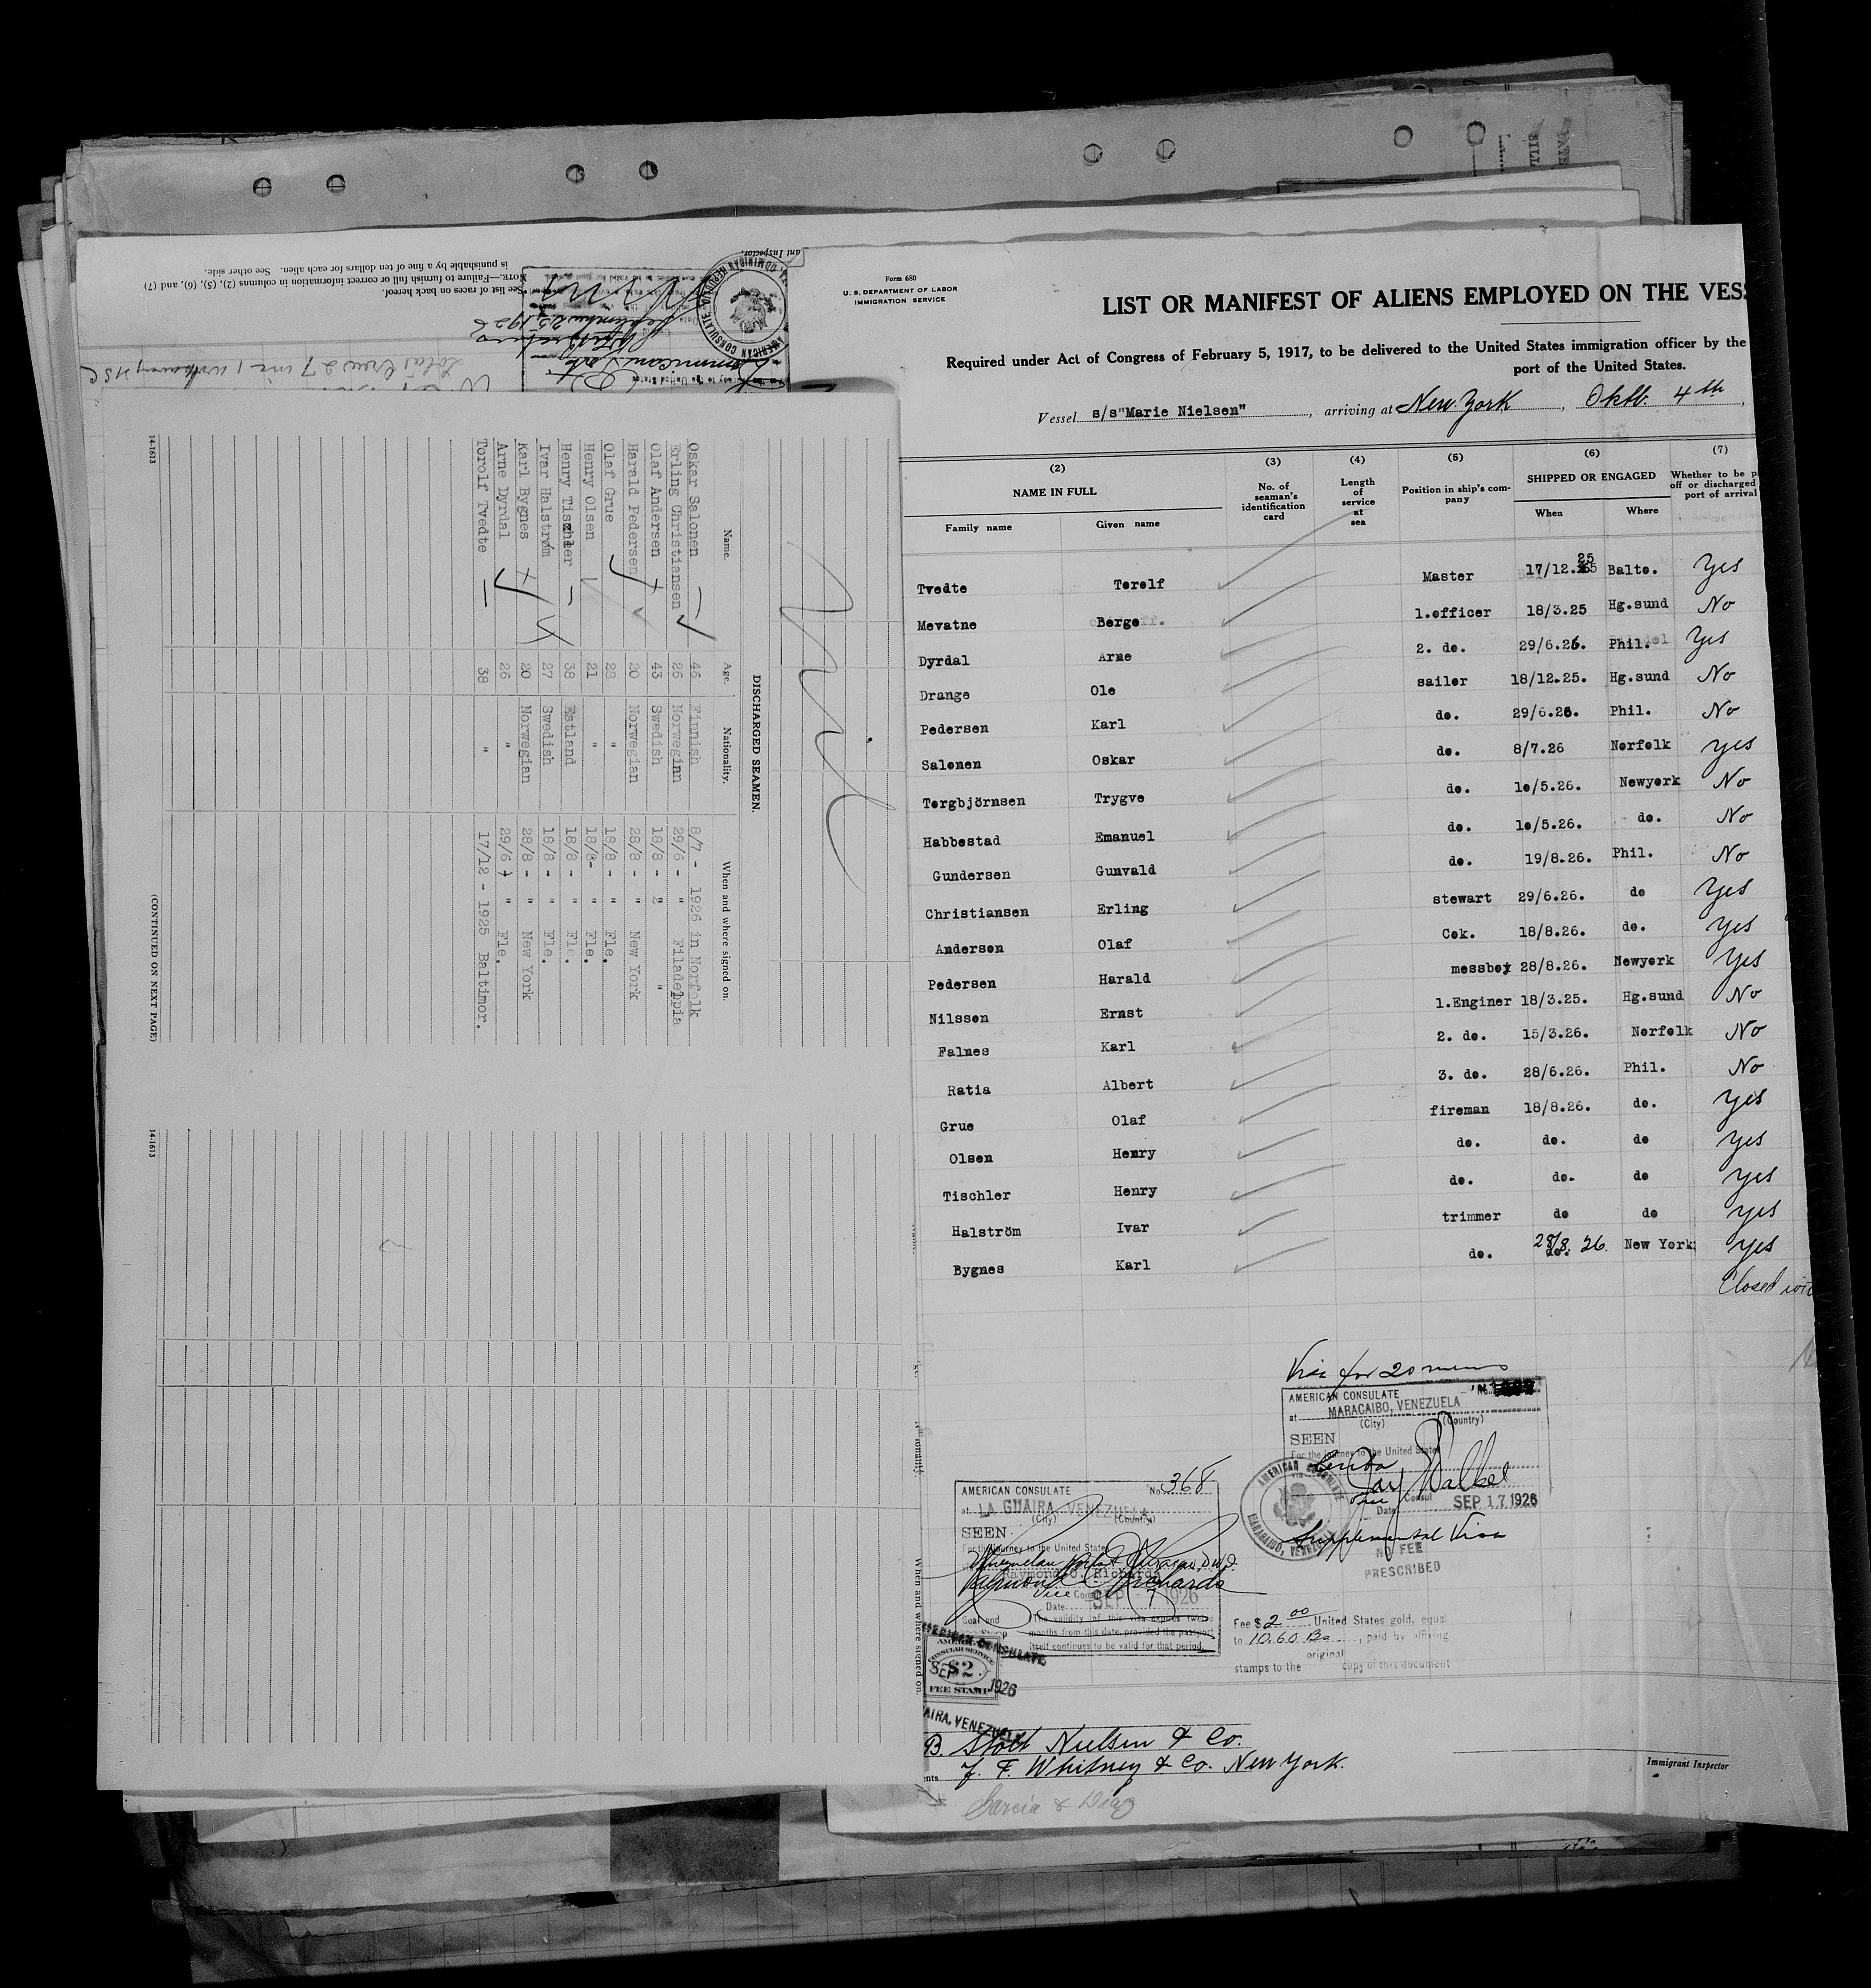 is punishable by a fine of ten dollars for each alien. See other side.
NOTE.—Failure to furnish full or correct information in columns (2), (5), (6), and (7)
See list of races on back hereof.
ant Inspector.
AMERICAN CONSULATE
DOMINICAN REPUBLIC
14-1613
DISCHARGED SEAMEN.
Name. Age. Nationality. When and where signed on.
Oskar Salonen 46 Finnish 8/7 - 1926 in Norfolk
Erling Christiansen 26 Norwegian 29/6 - " Filadelpia
Olaf Andersen 43 Swedish 18/8 - 2 "
Harald Pedersen 20 Norwegian 28/8 - " New York
Olaf Grue 28 " 18/8 - " Fle.
Henry Olsen 21 " 18/8- " Fle.
Henry Tischler 38 Estland 18/8 - " Fle.
Ivar Halstrøm 27 Swedish 18/8 - " Fle.
Karl Bygnes 20 Norwegian 28/8 - " New York
Arne Dyrdal 26 " 29/6 " Fle.
Torolf Tvedte 38 " 17/12 - 1925 Baltimor.
(CONTINUED ON NEXT PAGE)
14-1613
When and where signed on.
Form 680
U. S. DEPARTMENT OF LABOR
IMMIGRATION SERVICE
LIST OR MANIFEST OF ALIENS EMPLOYED ON THE VESS
Required under Act of Congress of February 5, 1917, to be delivered to the United States immigration officer by the
port of the United States.
Vessel s/s"Marie Nielsen", arriving at New York, Oktb. 4th,
(2) (3) (4) (5) (6) (7)
NAME IN FULL
Family name Given name
No. of seaman's identification card
Length of service at sea
Position in ship's company
SHIPPED OR ENGAGED
When Where
Whether to be p
off or discharged
port of arrival
Tvedte Torolf Master 17/12.25 Balto. Yes
Mevatne Berge 1.officer 18/3.25 Hg.sund No
Dyrdal Arne 2. do. 29/6.26. Phil. Yes
Drange Ole sailor 18/12.25. Hg.sund No
Pedersen Karl do. 29/6.26. Phil. No
Salonen Oskar do. 8/7.26 Norfolk yes
Torgbjörnsen Trygve do. 10/5.26. Newyork No
Habbestad Emanuel do. 10/5.26. do. No
Gundersen Gunvald do. 19/8.26. Phil. No
Christiansen Erling stewart 29/6.26. do Yes
Andersen Olaf Cok. 18/8.26. do. yes
Pedersen Harald messboy 28/8.26. Newyork Yes
Nilssen Ernst 1.Enginer 18/3.25. Hg.sund No
Falnes Karl 2. do. 15/3.26. Norfolk No
Ratia Albert 3. do. 28/6.26. Phil. No
Grue Olaf fireman 18/8.26. do. yes
Olsen Henry do. do. do yes
Tischler Henry do. do. do yes
Halström Ivar trimmer do do yes
Bygnes Karl do. 28/8. 26. New York yes
Closed
Visa for 20 mens
AMERICAN CONSULATE
at MARACAIBO, VENEZUELA
(City) (Country)
SEEN
For the journey to the United States
Date SEP 17 1926
AMERICAN CONSULATE
MARACAIBO, VENEZUELA
Supplemental Visa
NO FEE
PRESCRIBED
AMERICAN CONSULATE No. 368
at LA GUAIRA, VENEZUELA
(City) (Country)
SEEN
For the journey to the United States
Raymond O. Richards
Vice Consul
Date SEP 7 1926
Seal and
The validity of this visa expires twelve
months from this date, provided the passport
itself continues to be valid for that period.
AMERICAN CONSULATE
AMERICAN
CONSULAR SERVICE
$2
FEE STAMP
SEP 1926
AIRA, VENEZUELA
Fee $ 2 00 United States gold, equal
to 10.60 Bs, paid by affixing
stamps to the original copy of this document
B. Stolt Nielsen & Co.
J. F. Whitney & Co. New York.
Garcia & Diaz
Immigrant Inspector